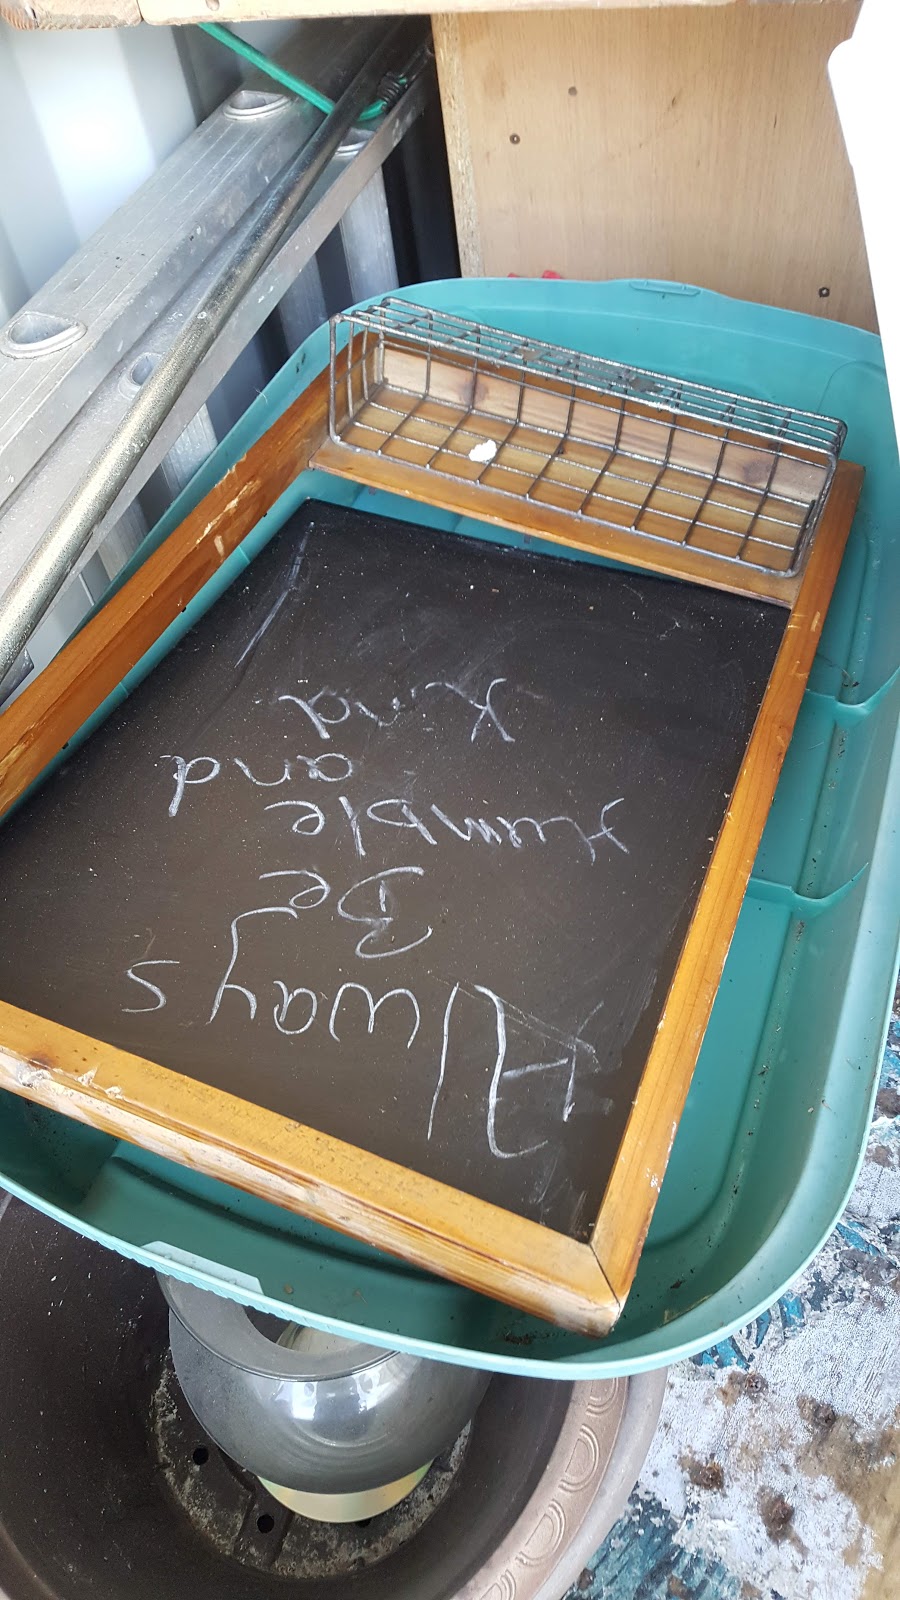 Always
Be
Humble and
Kind